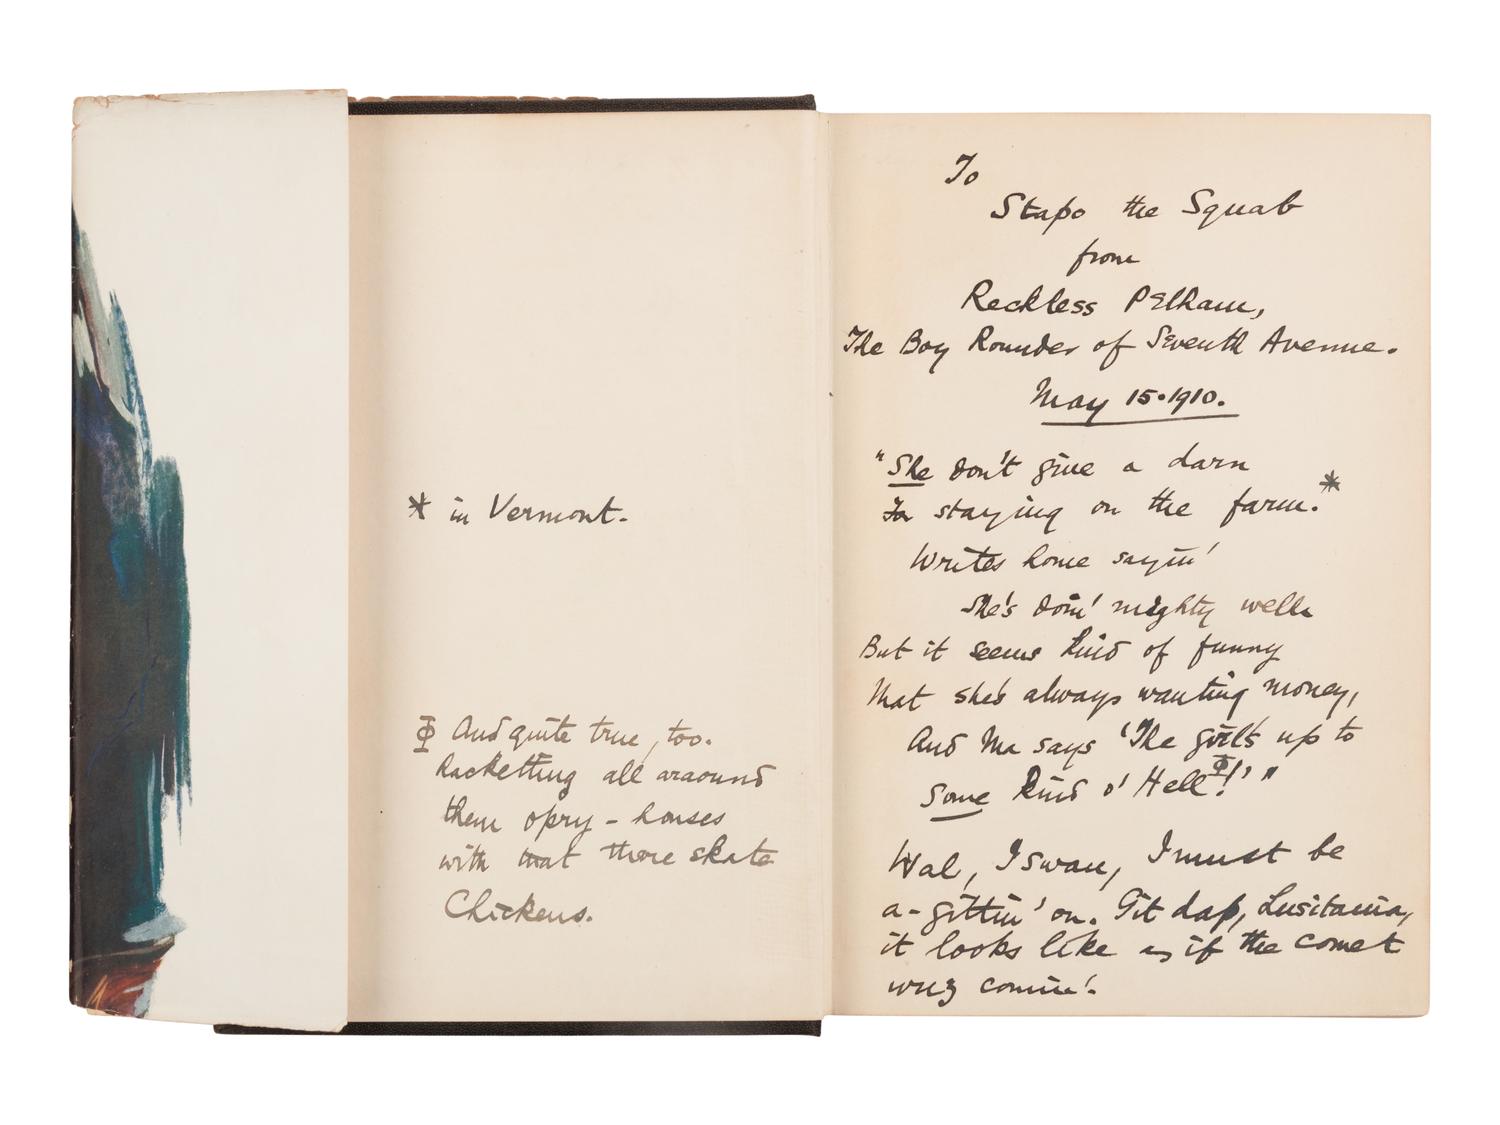 * in Vermont.
Φ And quite true, too.
Racketting all araound
them opry-houses
with that there skate
Chickens.
To
Stapo the Squab
from
Reckless Pelham,
The Boy Rounder of Seventh Avenue.
May 15.1910.
"She don't give a darn
For staying on the farm.*
Writes home sayin'
She's doin' mighty well
But it seems kind of funny
That she's always wanting money,
And Ma says 'The girl's up to
Some kind o' Hell Φ!'"
Wal, I swan, I must be
a-gittin' on. Git dap, Lusitania,
it looks like as if the comet
wuz comin'.